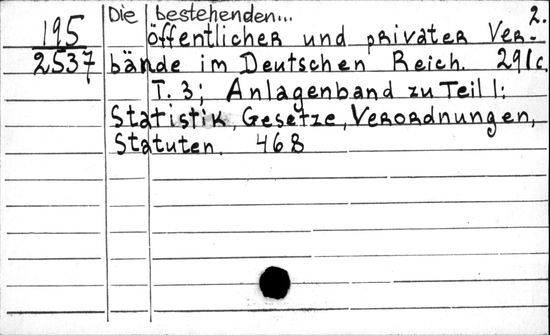 Die bestehenden... 2.
195 öffentlicher und privater Ver-
2537 bände im Deutschen Reich. 291c.
T. 3; Anlagenband zu Teil 1:
Statistik, Gesetze, Verordnungen,
Statuten. 468